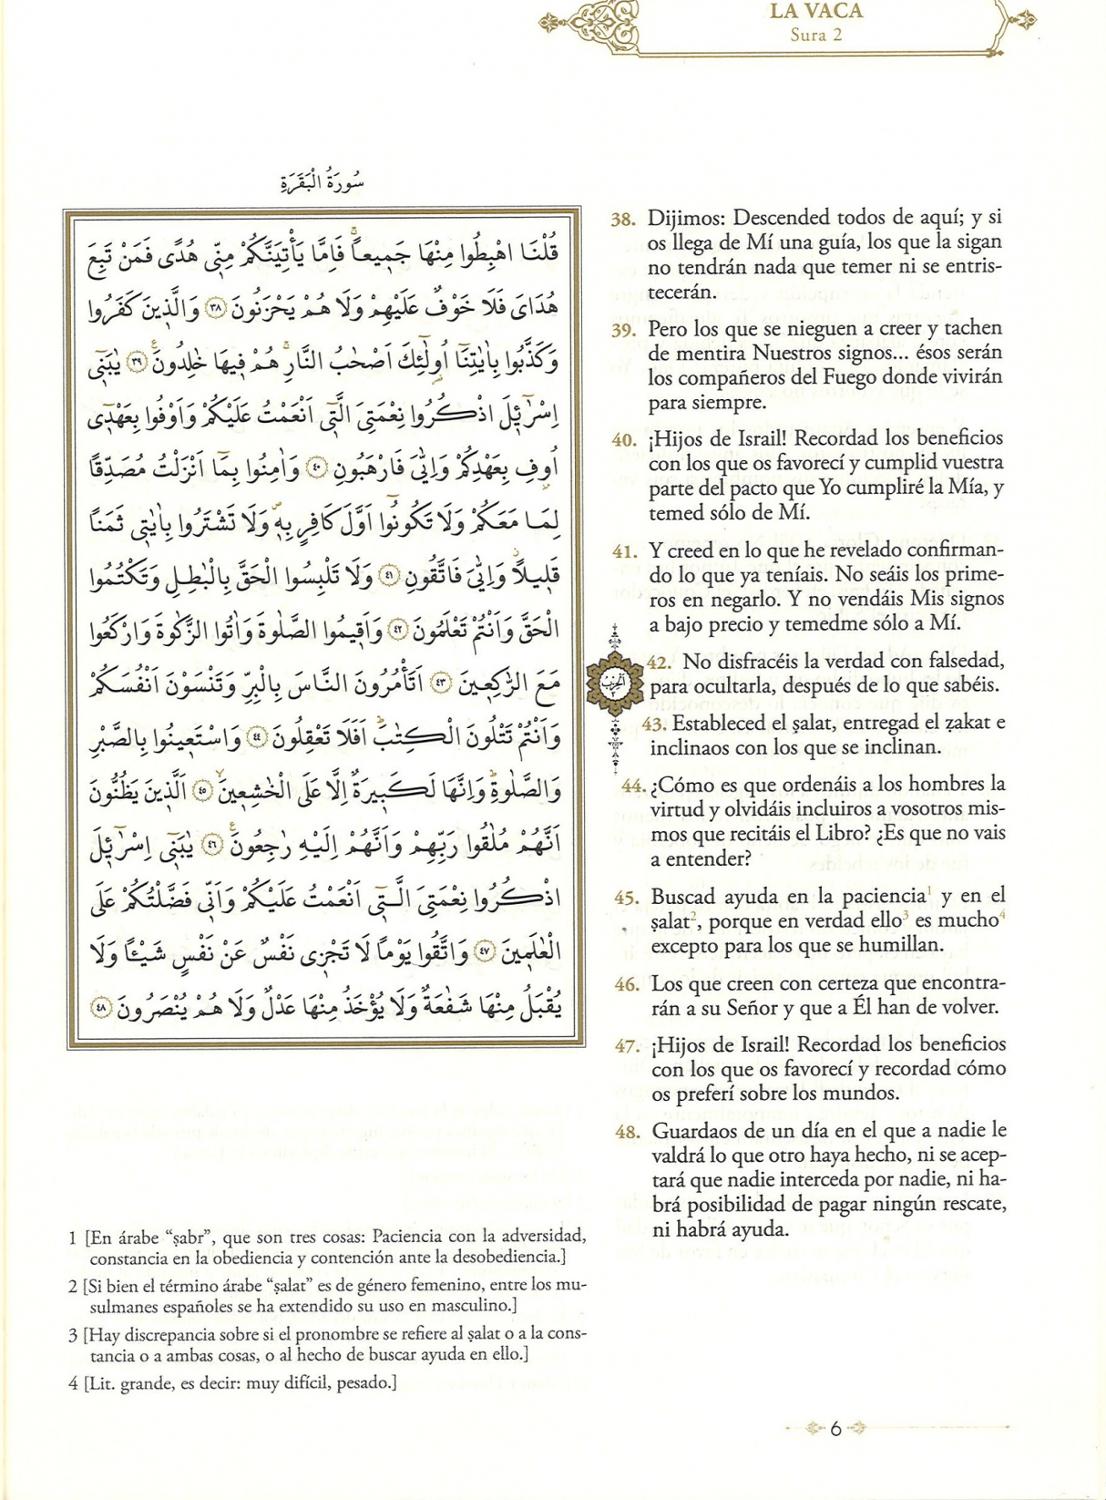 LA VACA
Sura 2
سُورَةُ الْبَقَرَةِ
قُلْنَا اهْبِطُوا مِنْهَا جَمٖيعاًۚ فَاِمَّا يَأْتِيَنَّكُمْ مِنّٖى هُدًى فَمَنْ تَبِعَ
هُدَاىَ فَلَا خَوْفٌ عَلَيْهِمْ وَلَا هُمْ يَحْزَنُونَ ٣٨ وَالَّذٖينَ كَفَرُوا
وَكَذَّبُوا بِاٰيَاتِنَٓا اُولٰٓئِكَ اَصْحَابُ النَّارِۚ هُمْ فٖيهَا خَالِدُونَ ٣٩ يَا بَنٖٓى
اِسْرَٓائٖلَ اذْكُرُوا نِعْمَتِىَ الَّتٖٓى اَنْعَمْتُ عَلَيْكُمْ وَاَوْفُوا بِعَهْدٖٓى
اُوفِ بِعَهْدِكُمْ وَاِيَّاىَ فَارْهَبُونِ ٤٠ وَاٰمِنُوا بِمَٓا اَنْزَلْتُ مُصَدِّقاً
لِمَا مَعَكُمْ وَلَا تَكُونُٓوا اَوَّلَ كَافِرٍ بِهٖۖ وَلَا تَشْتَرُوا بِاٰيَاتٖى ثَمَناً
قَلٖيلاًۘ وَاِيَّاىَ فَاتَّقُونِ ٤١ وَلَا تَلْبِسُوا الْحَقَّ بِالْبَاطِلِ وَتَكْتُمُوا
الْحَقَّ وَاَنْتُمْ تَعْلَمُونَ ٤٢ وَاَقٖيمُوا الصَّلٰوةَ وَاٰتُوا الزَّكٰوةَ وَارْكَعُوا
مَعَ الرَّاكِعٖينَ ٤٣ اَتَأْمُرُونَ النَّاسَ بِالْبِرِّ وَتَنْسَوْنَ اَنْفُسَكُمْ
وَاَنْتُمْ تَتْلُونَ الْكِتَابَۜ اَفَلَا تَعْقِلُونَ ٤٤ وَاسْتَعٖينُوا بِالصَّبْرِ
وَالصَّلٰوةِۜ وَاِنَّهَا لَكَبٖيرَةٌ اِلَّا عَلَى الْخَاشِعٖينَۙ ٤٥ اَلَّذٖينَ يَظُنُّونَ
اَنَّهُمْ مُلَاقُوا رَبِّهِمْ وَاَنَّهُمْ اِلَيْهِ رَاجِعُونَ ٤٦ يَا بَنٖٓى اِسْرَٓائٖلَ
اذْكُرُوا نِعْمَتِىَ الَّتٖٓى اَنْعَمْتُ عَلَيْكُمْ وَاَنّٖى فَضَّلْتُكُمْ عَلَى
الْعَالَمٖينَ ٤٧ وَاتَّقُوا يَوْماً لَا تَجْزٖى نَفْسٌ عَنْ نَفْسٍ شَيْـٔاً وَلَا
يُقْبَلُ مِنْهَا شَفَاعَةٌ وَلَا يُؤْخَذُ مِنْهَا عَدْلٌ وَلَا هُمْ يُنْصَرُونَ ٤٨
38. Dijimos: Descended todos de aquí; y si
os llega de Mí una guía, los que la sigan
no tendrán nada que temer ni se entris-
tecerán.
39. Pero los que se nieguen a creer y tachen
de mentira Nuestros signos... ésos serán
los compañeros del Fuego donde vivirán
para siempre.
40. ¡Hijos de Israil! Recordad los beneficios
con los que os favorecí y cumplid vuestra
parte del pacto que Yo cumpliré la Mía, y
temed sólo de Mí.
41. Y creed en lo que he revelado confirman-
do lo que ya teníais. No seáis los prime-
ros en negarlo. Y no vendáis Mis signos
a bajo precio y temedme sólo a Mí.
42. No disfracéis la verdad con falsedad,
para ocultarla, después de lo que sabéis.
43. Estableced el ṣalat, entregad el ẓakat e
inclinaos con los que se inclinan.
44. ¿Cómo es que ordenáis a los hombres la
virtud y olvidáis incluiros a vosotros mis-
mos que recitáis el Libro? ¿Es que no vais
a entender?
45. Buscad ayuda en la paciencia¹ y en el
ṣalat², porque en verdad ello³ es mucho⁴
excepto para los que se humillan.
46. Los que creen con certeza que encontra-
rán a su Señor y que a Él han de volver.
47. ¡Hijos de Israil! Recordad los beneficios
con los que os favorecí y recordad cómo
os preferí sobre los mundos.
48. Guardaos de un día en el que a nadie le
valdrá lo que otro haya hecho, ni se acep-
tará que nadie interceda por nadie, ni ha-
brá posibilidad de pagar ningún rescate,
ni habrá ayuda.
1 [En árabe “ṣabr”, que son tres cosas: Paciencia con la adversidad,
constancia en la obediencia y contención ante la desobediencia.]
2 [Si bien el término árabe “ṣalat” es de género femenino, entre los mu-
sulmanes españoles se ha extendido su uso en masculino.]
3 [Hay discrepancia sobre si el pronombre se refiere al ṣalat o a la cons-
tancia o a ambas cosas, o al hecho de buscar ayuda en ello.]
4 [Lit. grande, es decir: muy difícil, pesado.]
6